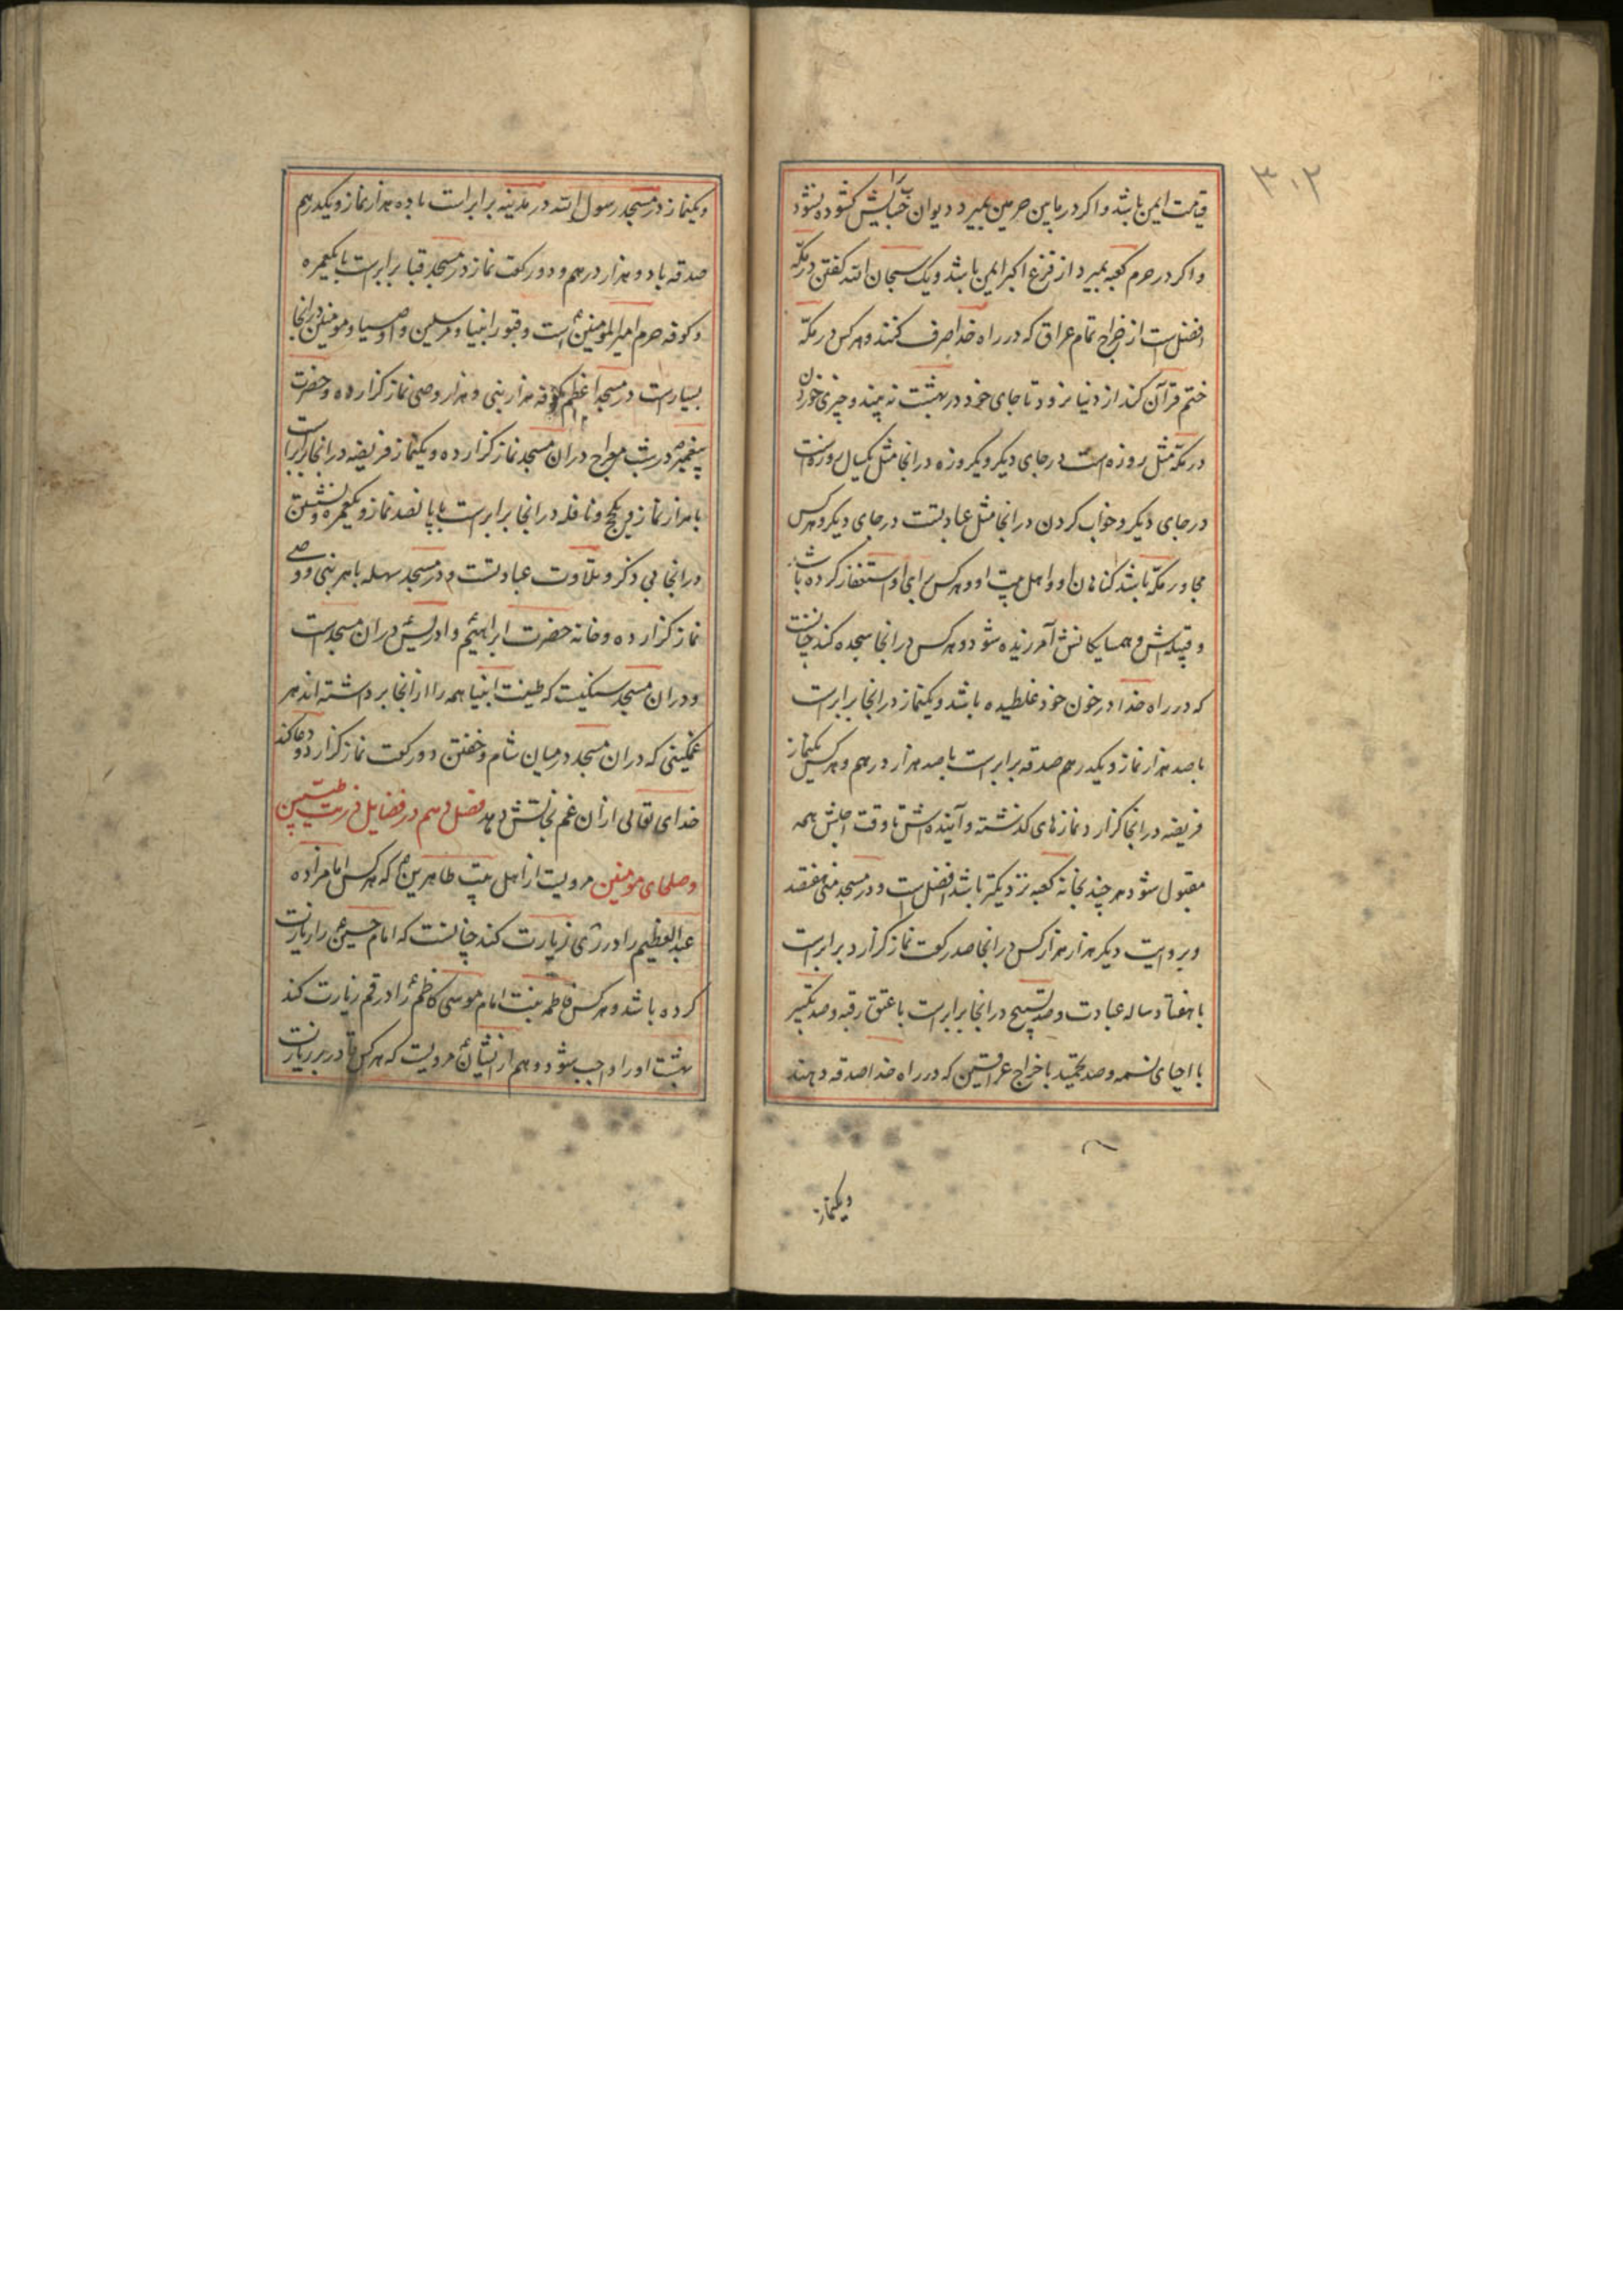 ۳۰۲
قیامت ایمن باشد و اکر در مابین حرمین بمیرد دیوان حسابش کشوده نشود
و اکر در حرم کعبه بمیرد از فزع اکبر ایمن باشد و یک سبحان الله کفتن در مکّه
افضل است از خراج تمام عراق که در راه خدا صرف کنند و هر کس در مکّه
ختم قرآن کند از دنیا نرود تا جای خود در بهشت نه بیند و چیزی خوردن
در مکّه مثل روزه است در جای دیکر و یکروزه در انجا مثل یکسال روزه است
در جای دیکر و خواب کردن در انجا مثل عبادتست در جای دیکر و هر کس
مجاور مکّه باشد کناهان او و اهل بیت او و هر کس برای او استغفار کرده باشد
و قبیله‌اش و همسایکانش آمرزیده شود و هر کس در انجا سجده کند چنانست
که در راه خدا در خون خود غلطیده باشد و یکنماز در انجا برابر است
با صد هزار نماز و یکدرهم صدقه برابر است با صد هزار درهم و هر کس یکنماز
فریضه در انجا کزارد نمازهای کذشته و آینده‌اش تا وقت اجلش همه
مقبول شود هر چند بخانهٔ کعبه نزدیکتر باشد افضل است و در مسجد منی هفتصد
و بروایت دیکر هزار هزار کس در انجا صد رکعت نماز کزارد برابر است
با هفتاد ساله عبادت و صد تسبیح در انجا برابر است با عتق رقبه و صد تکبیر
با احیای نسمه و صد تحمید با خراج عراقین که در راه خدا صدقه دهند
ویکنماز
ویکنماز در مسجد رسول الله در مدینه برابر است با ده هزار نماز و یکدرهم
صدقه با دو هزار درهم و دو رکعت نماز در مسجد قبا برابر است با یکعمره
و کوفه حرم امیر المومنین است و قبور انبیا و مرسلین و اوصیا و مومنین در انجا
بسیار است در مسجد اعظم کوفه هزار نبی و هزار وصی نماز کزارده و حضرت
پیغمبر در شب معراج در ان مسجد نماز کزارده و یکنماز فریضه در انجا برابر است
با هزار نماز و یکحج و نافله در انجا برابر است با پانصد نماز و یکعمره و نشستن
در انجا بی ذکر و تلاوت عبادتست و در مسجد سهله هر نبی و وصی
نماز کزارده و خانه حضرت ابراهیم و ادریس در ان مسجد است
و در ان مسجد سنکیست که طینت انبیا همه را از انجا برداشته‌اند هر
غمکینی که در ان مسجد در میان شام و خفتن دو رکعت نماز کزارد و دعا کند
خدای تعالی از ان غم نجاتش دهد فصل دهم در فضایل ذریت طیبین
و صلحای مومنین مرویست از اهل بیت طاهرین که هر کس امامزاده
عبد العظیم را در ری زیارت کند چنانست که امام حسین را زیارت
کرده باشد و هر کس فاطمه بنت امام موسی کاظم را در قم زیارت کند
بهشت او را واجب شود و هم از ایشان مرویست که هر کس قادر بر زیارت